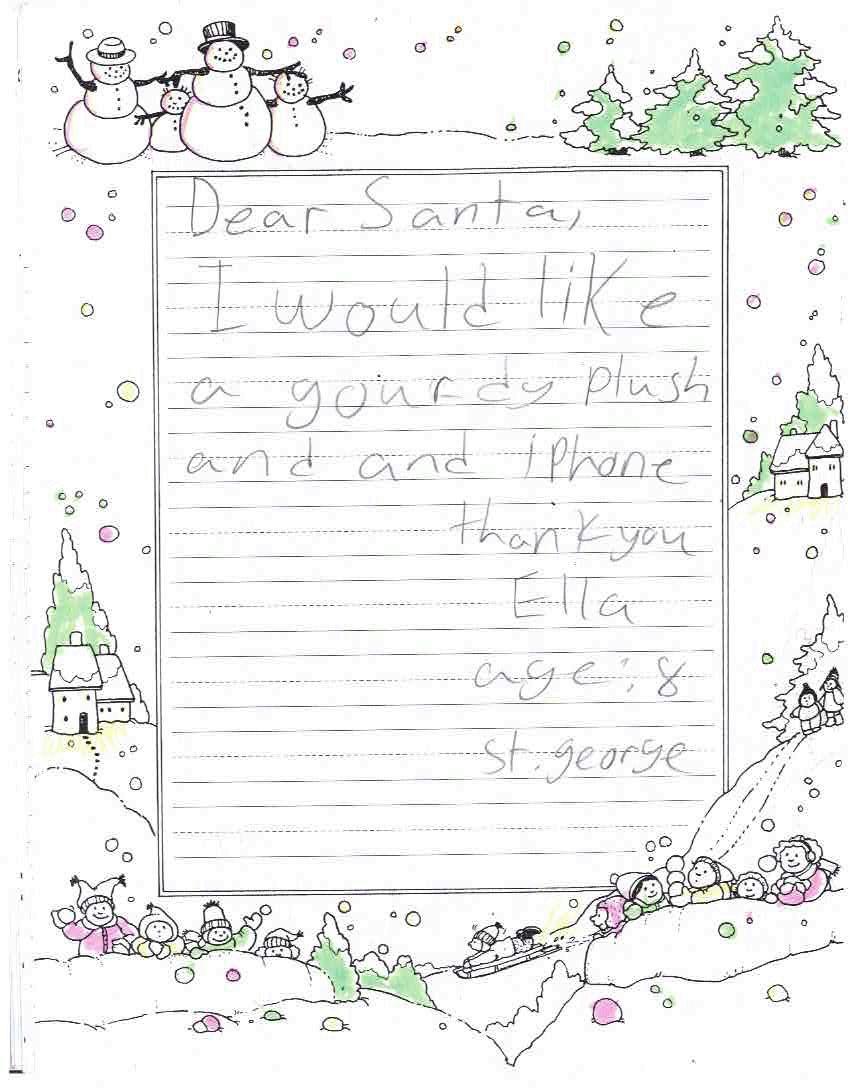 Dear Santa,
I would like
a gourdy plush
and and iphone
thank you
Ella
age: 8
st. george